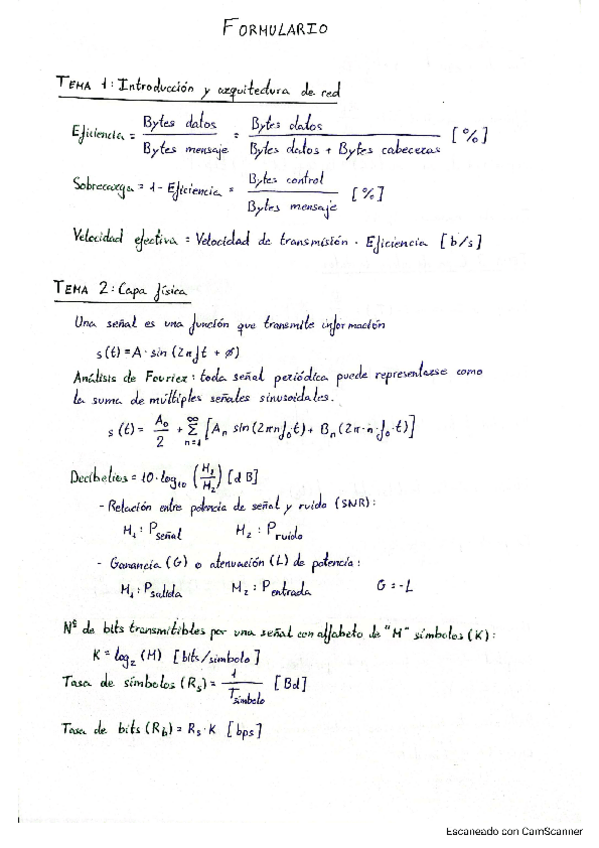 FORMULARIO
TEMA 1: Introducción y arquitectura de red
Eficiencia = Bytes datos / Bytes mensaje = Bytes datos / Bytes datos + Bytes cabeceras [%]
Sobrecarga = 1 - Eficiencia = Bytes control / Bytes mensaje [%]
Velocidad efectiva = Velocidad de transmisión · Eficiencia [b/s]
TEMA 2: Capa física
Una señal es una función que transmite información
s(t) = A · sin (2πft + ø)
Análisis de Fourier: toda señal periódica puede representarse como
la suma de múltiples señales sinusoidales.
s(t) = A₀/2 + Σ_{n=1}^{∞} [Aₙ sin(2πnf₀t) + Bₙ (2π·n·f₀·t)]
Decibelios = 10·log₁₀ (M₁/M₂) [dB]
- Relación entre potencia de señal y ruido (SNR):
M₁: Pseñal M₂: Pruido
- Ganancia (G) o atenuación (L) de potencia:
M₁: Psalida M₂: Pentrada G = -L
Nº de bits transmitibles por una señal con alfabeto de "M" símbolos (K):
K = log₂ (M) [bits/símbolo]
Tasa de símbolos (Rs) = 1 / Tsímbolo [Bd]
Tasa de bits (Rb) = Rs·K [bps]
Escaneado con CamScanner